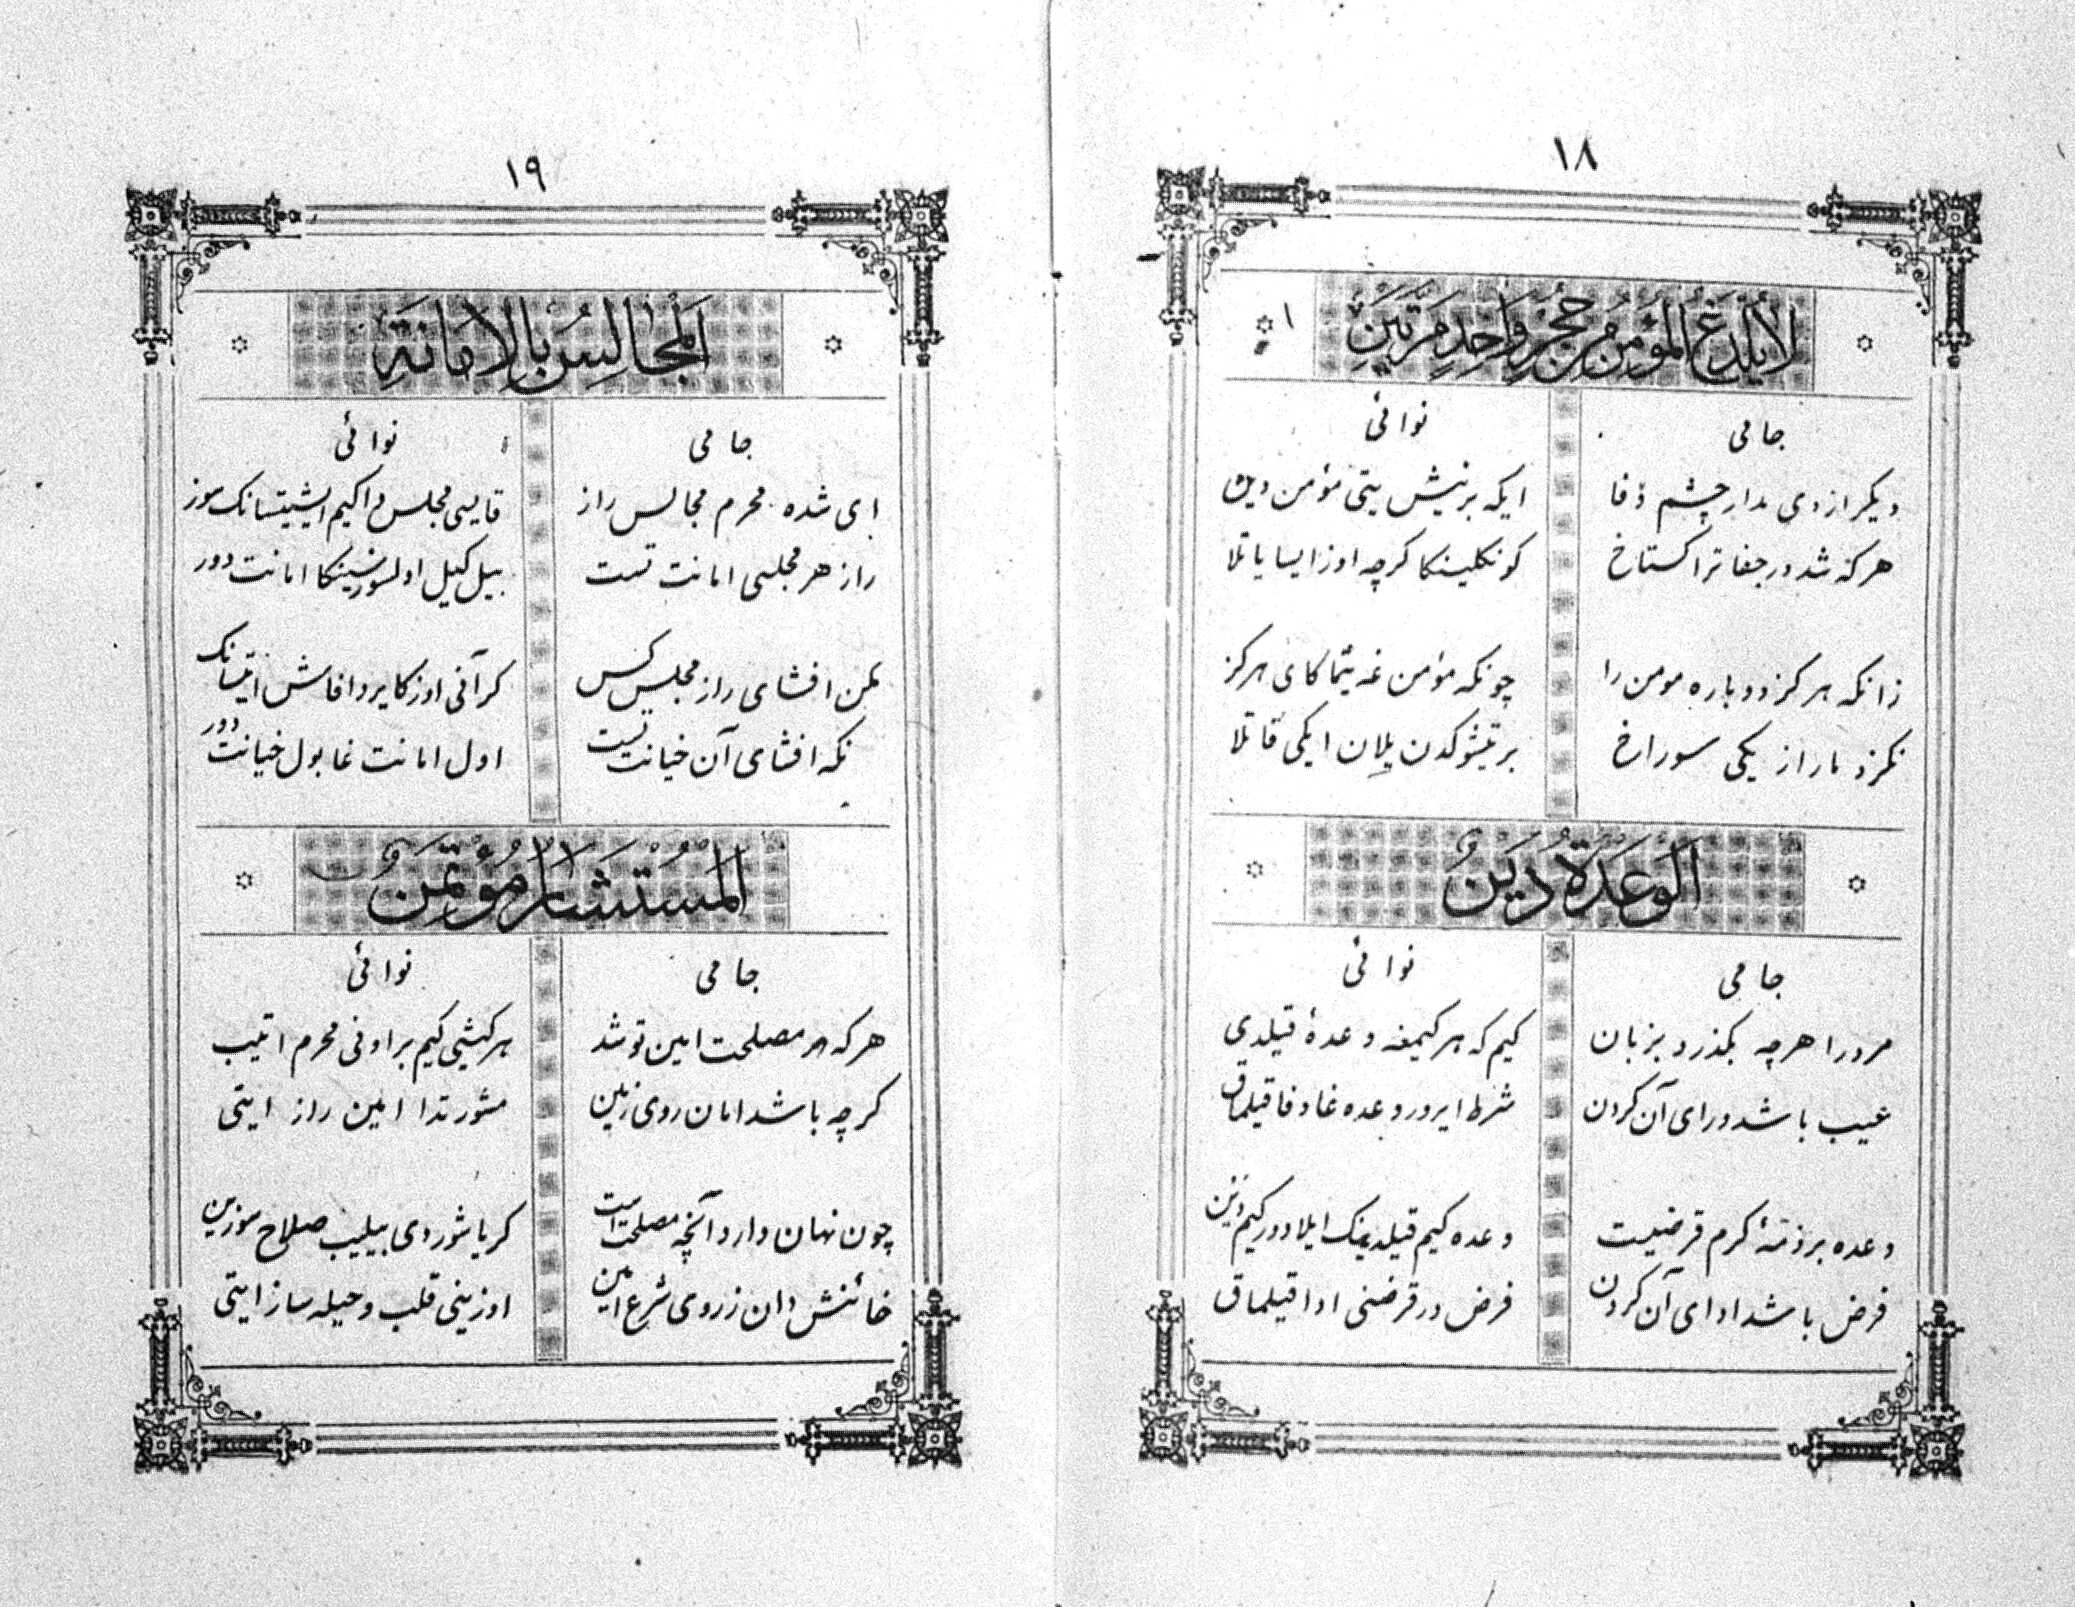 ۱۸
لَا يُلْدَغُ الْمُؤْمِنُ مِنْ جُحْرٍ وَاحِدٍ مَرَّتَيْنِ
جامی
دیکر از وی مدار چشم وفا
هر که شد در جفا ترا کستاخ
زانکه هرکز دوباره مومن را
نکزد مار از یکی سوراخ
نوائی
ایکه بر نیش یتی مؤمن دین
کونکلینکا کرچه اوز ایسا یاتلا
چونکه مؤمن غه یتماکای هرکز
بر تیشوکدن ییلان ایکی قاتلا
اَلْوَعْدَةُ دَيْنٌ
جامی
مرد را هرچه بکذرد بزبان
عیب باشد ورای آن کردن
وعده بر ذمّهٔ کرم قرضیست
فرض باشد ادای آن کردن
نوائی
کیم که هر کیمغه وعدهٔ قیلدی
شرط ایرور وعده غا وفا قیلماق
وعده کیم قیلدینک ایلادور کیم دَین
فرض در قرضنی ادا قیلماق
۱۹
اَلْمَجَالِسُ بِالْاَمَانَةِ
جامی
ای شده محرم مجالس راز
راز هر مجلسی امانت تست
مکن افشای راز مجلس کس
نکه افشای آن خیانت تست
نوائی
قایسی مجلس دا کیم ایشیتسانک سوز
بیل کیل اول سوز سینکا امانت دور
کر آنی اوزکا یردا فاش ایتسانک
اول امانت غا بول خیانت دور
اَلْمُسْتَشَارُ مُؤْتَمَنٌ
جامی
هر که در مصلحت امین تو شد
کرچه باشد امان روی زمین
چون نهان دارد آنچه مصلحت است
خائنش دان ز روی شرع امین
نوائی
هر کیشی کیم بر اونی محرم ایتیب
مشورتدا امین راز ایتی
کر یاشوردی بیلیب صلاح سوزین
اوزینی قلب و حیله ساز ایتی